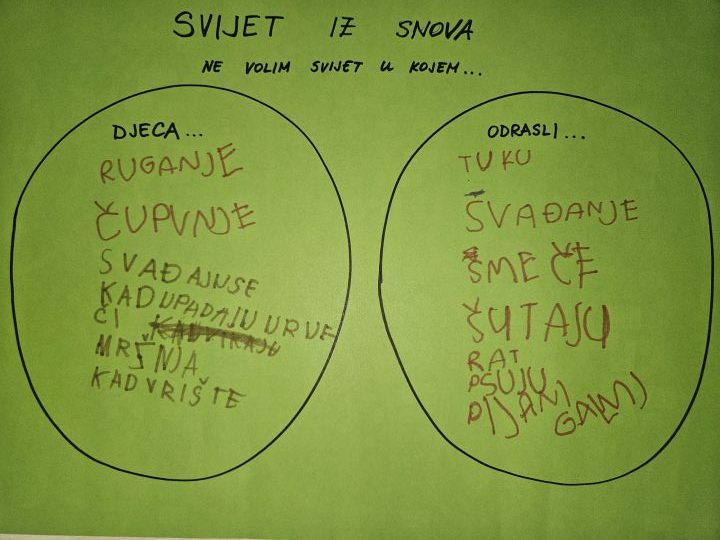 SVIJET IZ SNOVA
NE VOLIM SVIJET U KOJEM...
DJECA...
RUGANJE
ČUPVNJE
SVAĐAJUSE
KAD UPADAJU U RVE
ČI
MRŠNJA
KAD VRIŠTE
ODRASLI...
TUKU
SVAĐANJE
SMEČE
ŠUTAJU
RAT
PSUJU
PIJANI
GALAMI